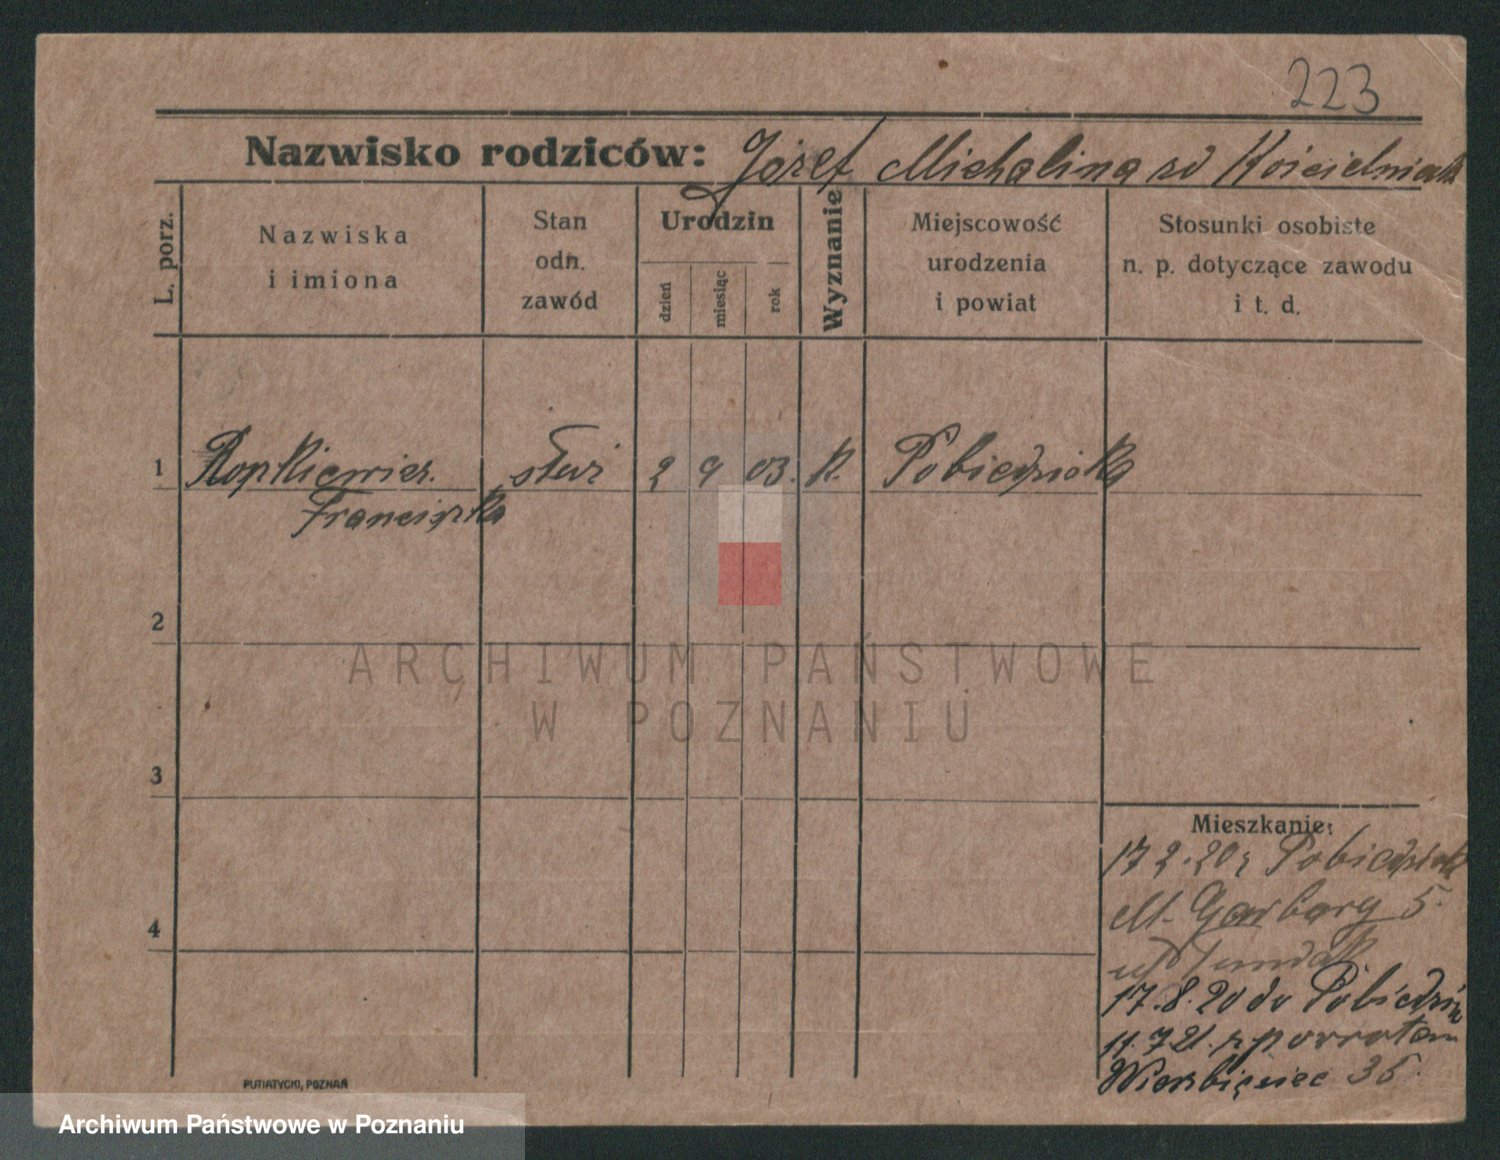 223
Nazwisko rodziców: Józef Michalina zd Kościelniak
L. porz.
Nazwiska i imiona
Stan odn. zawód
Urodzin
dzień
miesiąc
rok
Wyznanie
Miejscowość urodzenia i powiat
Stosunki osobiste n. p. dotyczące zawodu i t. d.
1 Ropkiewicz. służ 2 9 03. k. Pobiedziska
Franciszka
2
ARCHIWUM PAŃSTWOWE
W POZNANIU
3
4
Mieszkanie:
17 2. 20 z Pobiedzisk
M. Garbary 5.
17. 8. 20 do Pobiedzisk
11. 7 21. z powrotem
Wierzbięcice 36.
PUTIATYCKI, POZNAŃ
Archiwum Państwowe w Poznaniu